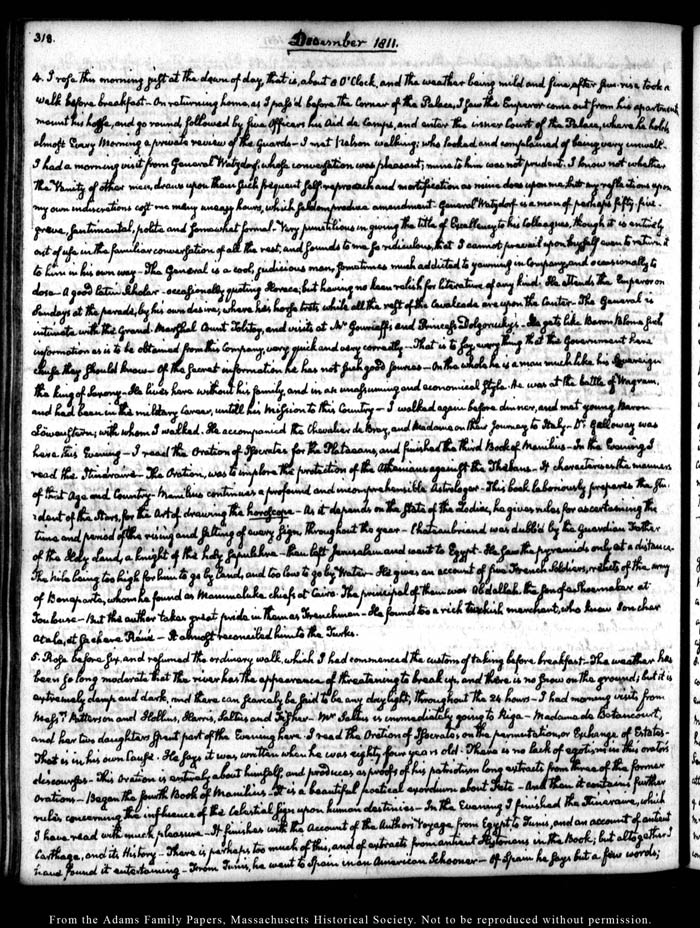 318.
December 1811.
4. I rose this morning just at the dawn of day, that is, about 8 O'Clock, and the weather being mild and fine, after sun-rise took a
walk before breakfast. On returning home, as I pass'd before the Corner of the Palace, I saw the Emperor come out from his apartment
mount his horse, and go round, followed by five Officers his Aid de Camps, and enter the inner Court of the Palace, where he holds
almost every Morning a private review of the Guards. I met Nelson walking; who looked and complained of being very unwell.
I had a morning visit from General Watzdorf, whose conversation was pleasant; mine to him was not prudent. I know not whether
the Vanity of other men, draws upon them such frequent self-reproach and mortification as mine does upon me, but my reflections upon
my own indiscretions cost me many uneasy hours, which seldom produce amendment. General Watzdorf is a man of perhaps fifty-five-
grave, sentimental, polite and somewhat formal. Very punctilious in giving the title of Excellency to his Colleagues, though it is entirely
out of use in the familiar conversation of all the rest, and sounds to me so ridiculous, that I cannot prevail upon myself even to return it
to him in his own way. The General is a cool, judicious man, sometimes much addicted to yawning in Company, and occasionally to
dose. A good Latin Scholar. occasionally quoting Horace; but having no keen relish for literature of any kind. He attends the Emperor on
Sundays at the parade, by his own desire; where his horse trots while all the rest of the Cavalcade are upon the Canter. The General is
intimate with the Grand Marshal Count Tolstoy, and visits at Mr Gourieff's and Princess Dolgorouky's. He gets like Baron Blome such
information as is to be obtained from this Company, very quick and very correctly. That is to say every thing that the Government have
chuse they should know. Of the secret information he has not such good sources. On the whole he is a man much like his Sovereign
the king of Saxony. He lives here without his family, and in an unassuming and economical style. He was at the battle of Wagram,
and had been in the military Career, untill his Mission to this Country. I walked again before dinner, and met young Baron
Löwenstern; with whom I walked. He accompanied the Chevalier de Bray, and Madame on their Journey to Italy. Dr. Galloway was
here this Evening. I read the Oration of Isocrates for the Plataeans, and finished the third Book of Manilius. In the Evening I
read the Itinéraire. The Oration, was to implore the protection of the Athenians against the Thebans. It characterises the manners
of that Age and Country. Manilius continues a profound and incomprehensible Astrologer. This book laboriously prepares the stu-
dent of the Stars, for the Art of drawing the horoscope. As it depends on the state of the Zodiac, he gives rules for ascertaining the
time and period of the rising and setting of every sign, throughout the year. Chateaubriand was dubb'd by the Guardian Father
of the Holy Land, a knight of the holy Sepulchre. then left Jerusalem and went to Egypt. He saw the pyramids only at a distance.
The Nile being too high for him to go by land, and too low to go by Water. He gives an account of five French Soldiers, relicts of the army
of Bonaparte, whom he found as Mammeluke chiefs at Cairo. The principal of them was Abdallah, the son of a Shoemaker at
Toulouse. But the author takes great pride in them as Frenchmen. He found too a rich turkish merchant, who knew son cher
Atala, et sa chere Réné. It almost reconciled him to the Turks.
5. Rose before six, and resumed the ordinary walk, which I had commenced the custom of taking before breakfast. The weather has
been so long moderate that the river has the appearance of threatening to break up, and there is no snow on the ground; but it is
extremely damp and dark, and there can scarcely be said to be any day light, throughout the 24 hours. I had morning visits from
Messrs. Patterson and Hollins, Harris, Saltus and Fisher. Mr Saltus is immediately going to Riga. Madame de Betancourt,
and her two daughters spent part of the Evening here. I read the Oration of Isocrates, on the permutation, or Exchange of Estates.
That is in his own Cause. He says it was written when he was eighty four years old. There is no lack of egotism in this orator's
discourses. This Oration is entirely about himself, and produces as proofs of his patriotism long extracts from three of the former
Orations. Began the fourth Book of Manilius. It is a beautiful poetical exordium about Fate. And then it contains further
rules concerning the influence of the Celestial Sign upon human destinies. In the Evening I finished the Itineraire, which
I have read with much pleasure. It finishes with the Account of the Author's Voyage from Egypt to Tunis, and an account of antient
Carthage, and its History. There is perhaps too much of this, and of extracts from antient Historians in the Book; but altogether I
have found it entertaining. From Tunis, he went to Spain in an American Schooner. Of Spain he says but a few words;
From the Adams Family Papers, Massachusetts Historical Society. Not to be reproduced without permission.